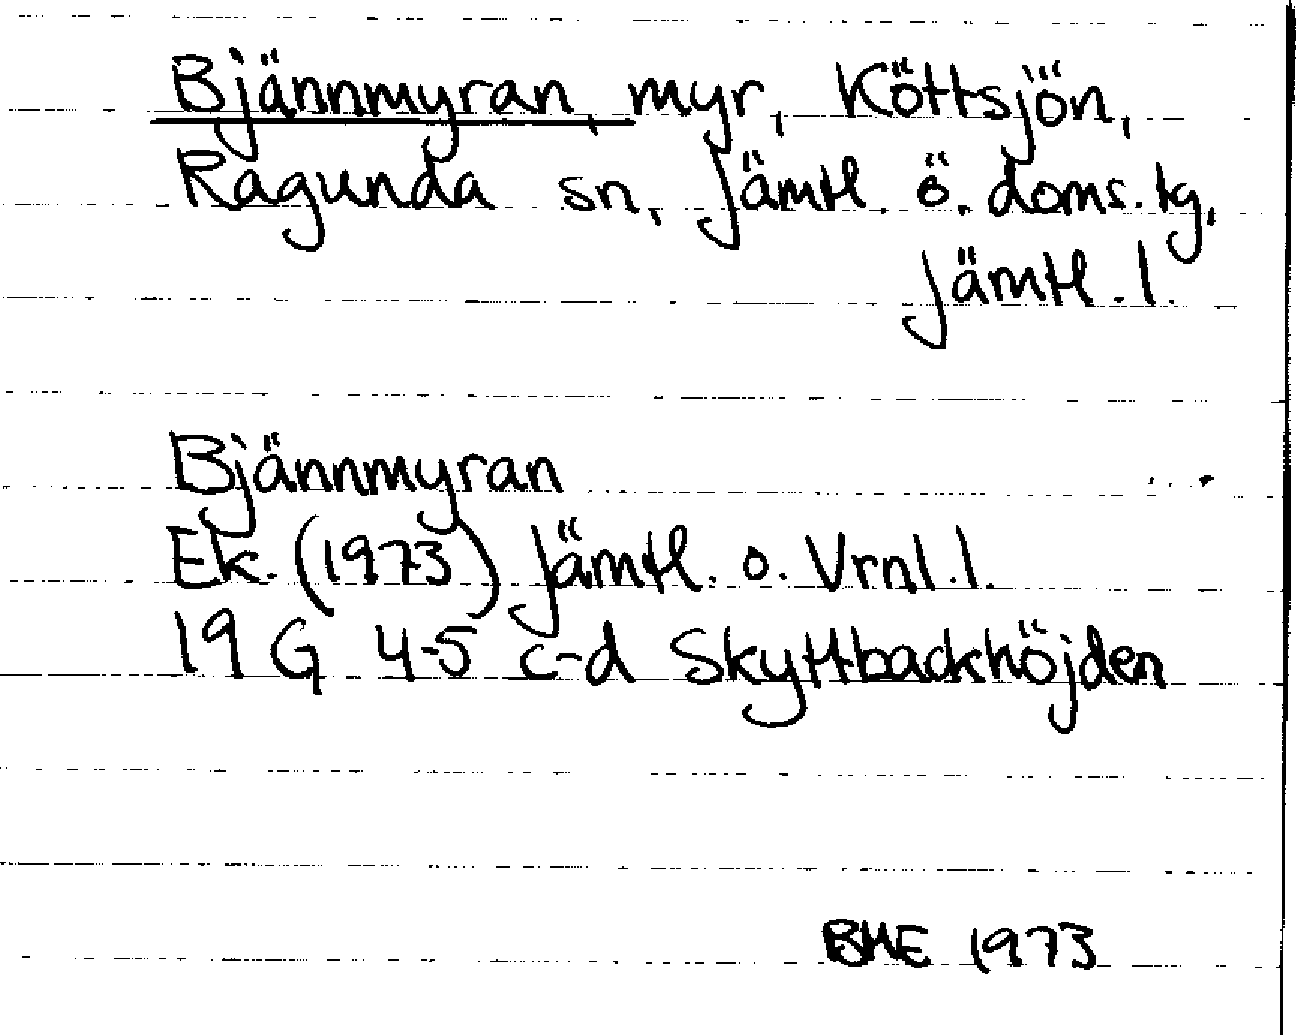 Bjännmyran, myr, Köttsjön,
Ragunda sn, Jämtl. ö. doms. tg,
Jämtl. l.
Bjännmyran
Ek. (1973) Jämtl. o. Vrnl. l.
19 G 4-5 c-d Skyttbackhöjden
BME 1973